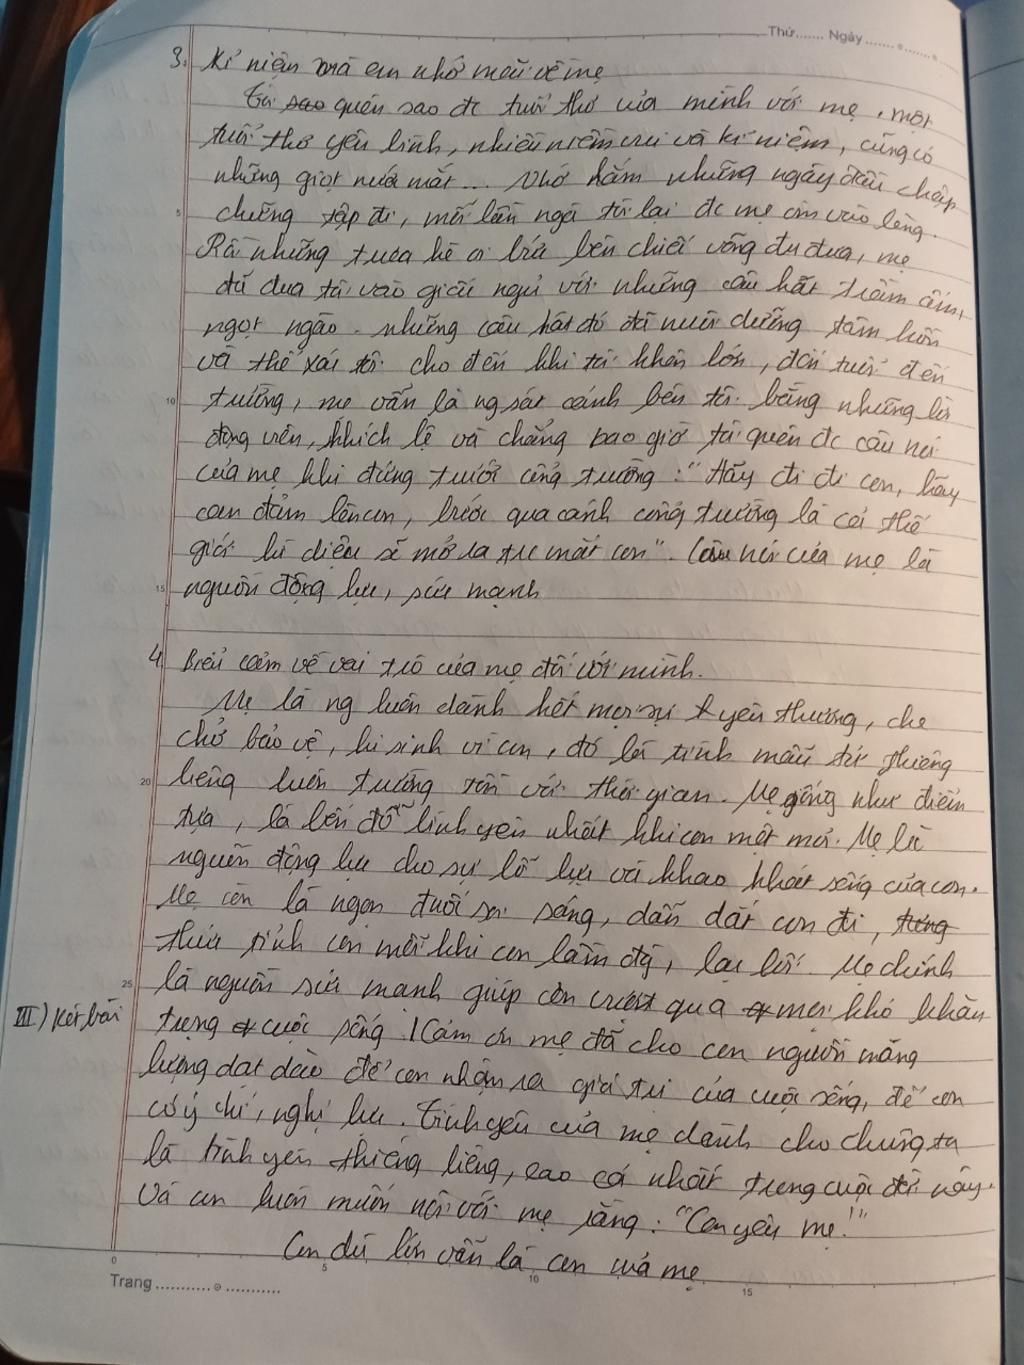 Thứ....... Ngày.......
3. Kỉ niệm mà em nhớ mãi về mẹ
Tôi sao quên sao đc tuổi thơ của mình với mẹ, một
tuổi thơ yên bình, nhiều niềm vui và kỉ niệm, cũng có
những giọt nước mắt... Nhớ hằm những ngày đầu chập
chững tập đi, mỗi lần ngã tôi lại đc mẹ ôm vào lòng.
Rồi những trưa hè oi bức bên chiếc võng đu đưa, mẹ
đã đưa tôi vào giấc ngủ với những câu hát trầm ấm,
ngọt ngào. những câu hát đó đã nuôi dưỡng tâm hồn
và thể xác tôi cho đến khi tôi khôn lớn, đến tuổi đến
10 trường, mẹ vẫn là ng sát cánh bên tôi bằng những lời
động viên, khích lệ và chẳng bao giờ tôi quên đc câu nói
của mẹ khi đứng trước cổng trường: "Hãy đi đi con, hãy
can đảm lên con, bước qua cánh cổng trường là cả thế
giới kì diệu sẽ mở ra trc mắt con". Câu nói của mẹ là
15 nguồn động lực, sức mạnh
4. Biểu cảm về vai trò của mẹ đối với mình.
Mẹ là ng luôn dành hết mọi sự yêu thương, che
chở bảo vệ, hi sinh vì con, đó là tình mẫu tử thiêng
20 liêng luôn trường tồn với thời gian. Mẹ giống như điểm
tựa, là bến đỗ bình yên nhất khi con mệt mỏi. Mẹ là
nguồn động lực cho sự lỗ lực và khao khát sống của con.
Mẹ còn là ngọn đuốc soi sáng, dẫn dắt con đi,
thức tỉnh con mỗi khi con lầm đg, lạc lối. Mẹ chính
25 là nguồn sức mạnh giúp còn vượt qua mọi khó khăn
III) Kết bài trong cuộc sống. / Cảm ơn mẹ đã cho con nguồn năng
lượng dạt dào để con nhận ra giá trị của cuộc sống, để con
có ý chí, nghị lực. Tình yêu của mẹ dành cho chúng ta
là tình yêu thiêng liêng, cao cả nhất trong cuộc đời này.
Và con luôn muốn nói với mẹ rằng: "Con yêu mẹ!"
Con dù lớn vẫn là con của mẹ
0 5 10 15
Trang...........